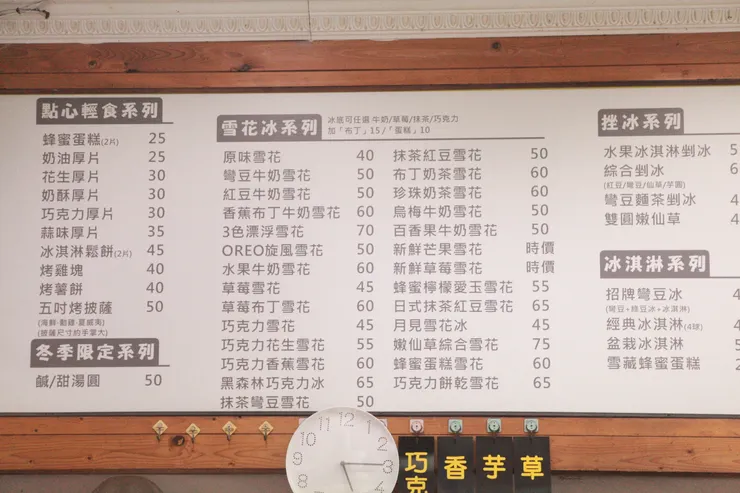 點心輕食系列
蜂蜜蛋糕(2片) 25
奶油厚片 25
花生厚片 30
奶酥厚片 30
巧克力厚片 30
蒜味厚片 35
冰淇淋鬆餅(2片) 45
烤雞塊 40
烤薯餅 40
五吋烤披薩 50
(海鮮·勳雞·夏威夷)
(披薩尺寸約手掌大)
冬季限定系列
鹹/甜湯圓 50
雪花冰系列
冰底可任選 牛奶/草莓/抹茶/巧克力
加「布丁」15/「蛋糕」10
原味雪花 40
彎豆牛奶雪花 50
紅豆牛奶雪花 50
香蕉布丁牛奶雪花 60
3色漂浮雪花 70
OREO旋風雪花 50
水果牛奶雪花 60
草莓雪花 45
草莓布丁雪花 60
巧克力雪花 45
巧克力花生雪花 55
巧克力香蕉雪花 60
黑森林巧克力冰 65
抹茶彎豆雪花 50
抹茶紅豆雪花 50
布丁奶茶雪花 60
珍珠奶茶雪花 60
烏梅牛奶雪花 50
百香果牛奶雪花 50
新鮮芒果雪花 時價
新鮮草莓雪花 時價
蜂蜜檸檬愛玉雪花 55
日式抹茶紅豆雪花 65
月見雪花冰 45
嫩仙草綜合雪花 75
蜂蜜蛋糕雪花 60
巧克力餅乾雪花 65
挫冰系列
水果冰淇淋剉冰 5
綜合剉冰 6
(紅豆/彎豆/仙草/芋圓)
彎豆麵茶剉冰 4
雙圓嫩仙草 4
冰淇淋系列
招牌彎豆冰 4
(彎豆+綠豆冰+冰淇淋)
經典冰淇淋(4球) 4
盆栽冰淇淋 5
雪藏蜂蜜蛋糕 2
12
1
2
3
4
5
7
8
9
10
11
巧克
香
芋
草